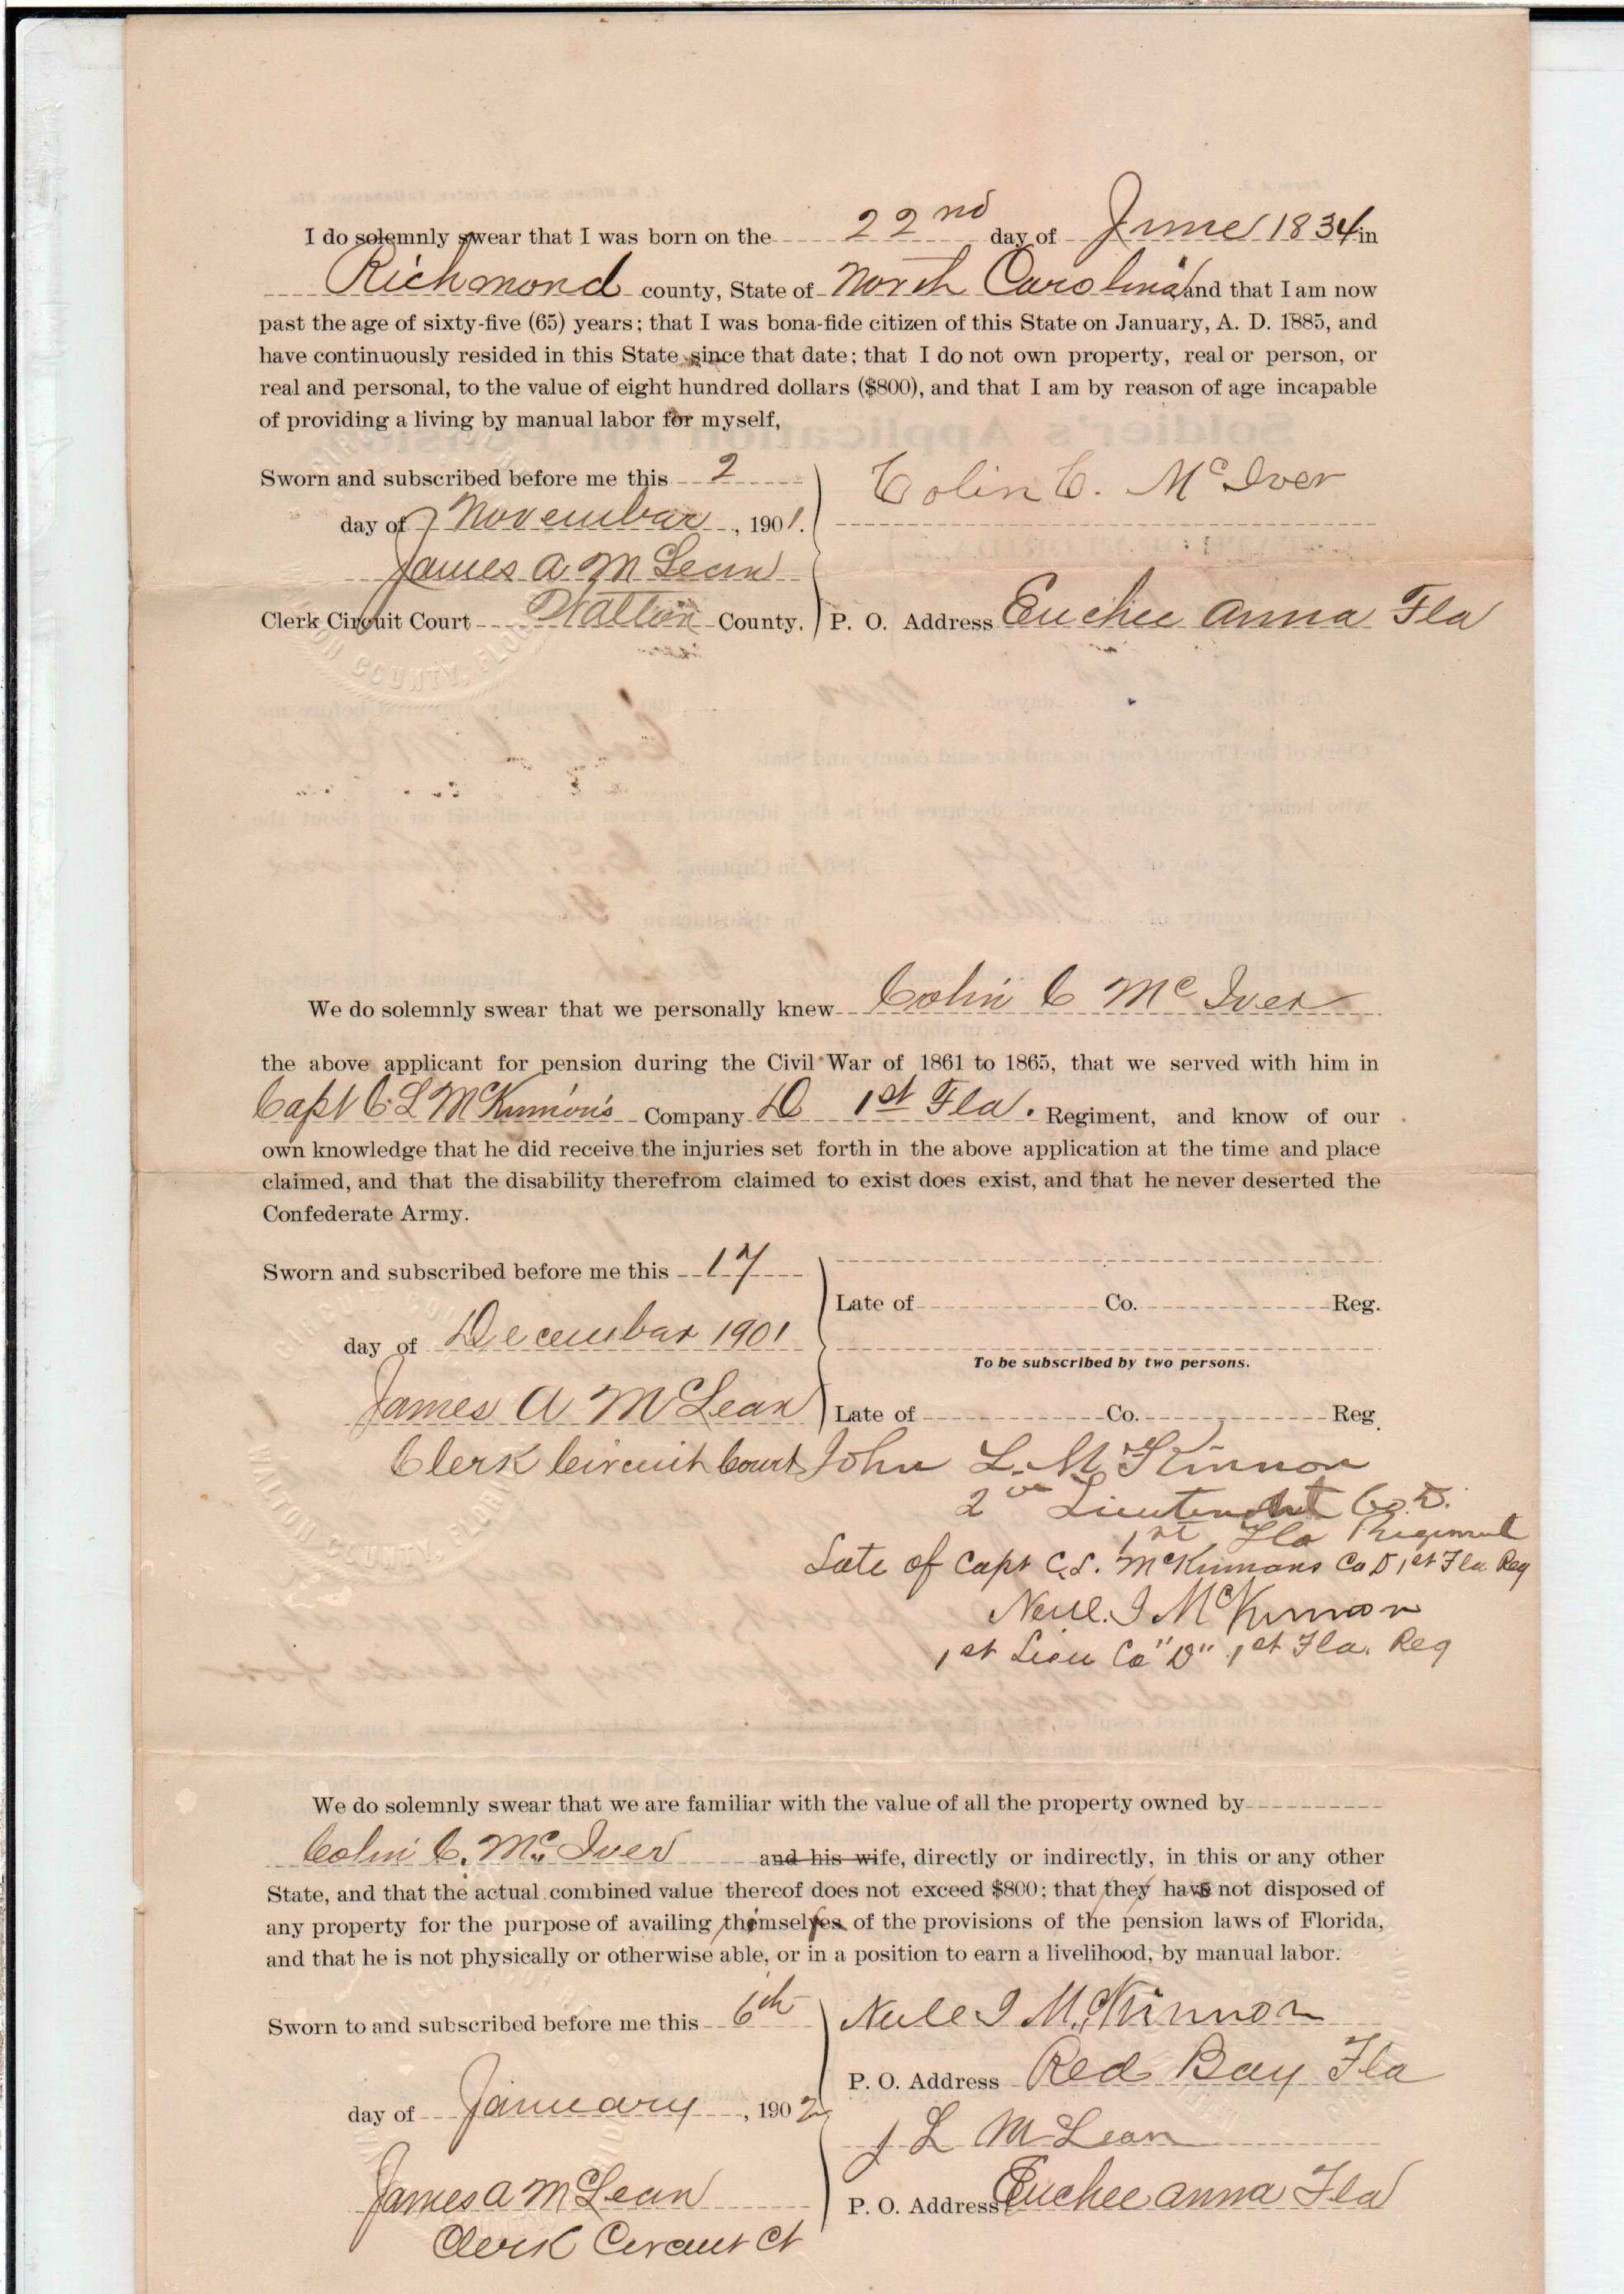 I do solemnly swear that I was born on the 22nd day of June 1834 in
Richmond county, State of North Carolina and that I am now
past the age of sixty-five (65) years; that I was bona-fide citizen of this State on January, A. D. 1885, and
have continuously resided in this State since that date; that I do not own property, real or person, or
real and personal, to the value of eight hundred dollars ($800), and that I am by reason of age incapable
of providing a living by manual labor for myself,
Sworn and subscribed before me this 2
day of November, 1901.
James A McLean
Clerk Circuit Court Walton County.
Colin C. McIver
P. O. Address Euchee Anna Fla
We do solemnly swear that we personally knew Colin C McIver
the above applicant for pension during the Civil War of 1861 to 1865, that we served with him in
Capt C L McKinnon's Company D 1st Fla. Regiment, and know of our
own knowledge that he did receive the injuries set forth in the above application at the time and place
claimed, and that the disability therefrom claimed to exist does exist, and that he never deserted the
Confederate Army.
Sworn and subscribed before me this 17
day of December 1901
James A McLean
Clerk Circuit Court
Late of Co. Reg.
To be subscribed by two persons.
Late of Co. Reg.
John L. McKinnon
2 Lieutenant Co. D.
1st Fla Regiment
Late of Capt C. L. McKinnons Co D 1st Fla Reg
Neill. J McKinnon
1st Lieu Co "D" 1st Fla. Reg
We do solemnly swear that we are familiar with the value of all the property owned by
Colin C. McIver and his wife, directly or indirectly, in this or any other
State, and that the actual combined value thereof does not exceed $800; that they have not disposed of
any property for the purpose of availing themselves of the provisions of the pension laws of Florida,
and that he is not physically or otherwise able, or in a position to earn a livelihood, by manual labor.
Sworn to and subscribed before me this 6th
day of January, 1902
James A McLean
Clerk Circuit Ct
Neill J McKinnon
P. O. Address Red Bay Fla
J L McLean
P. O. Address Euchee Anna Fla